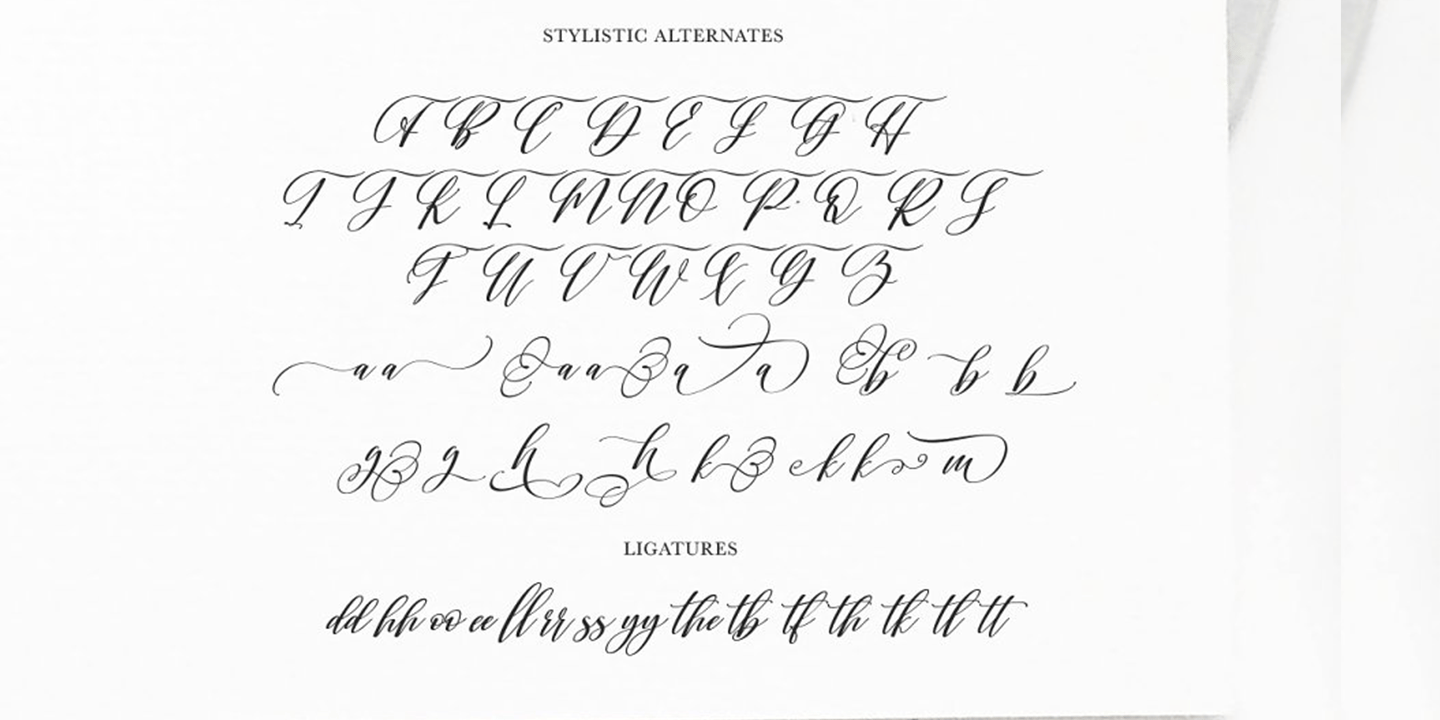 STYLISTIC ALTERNATES
A B C D E F G H
I J K L M N O P Q R S
T U V W X Y Z
a a a a a a b b b
g g h h k k k m
LIGATURES
dd hh oo ee ll rr ss yy the tb tf th tk tl tt